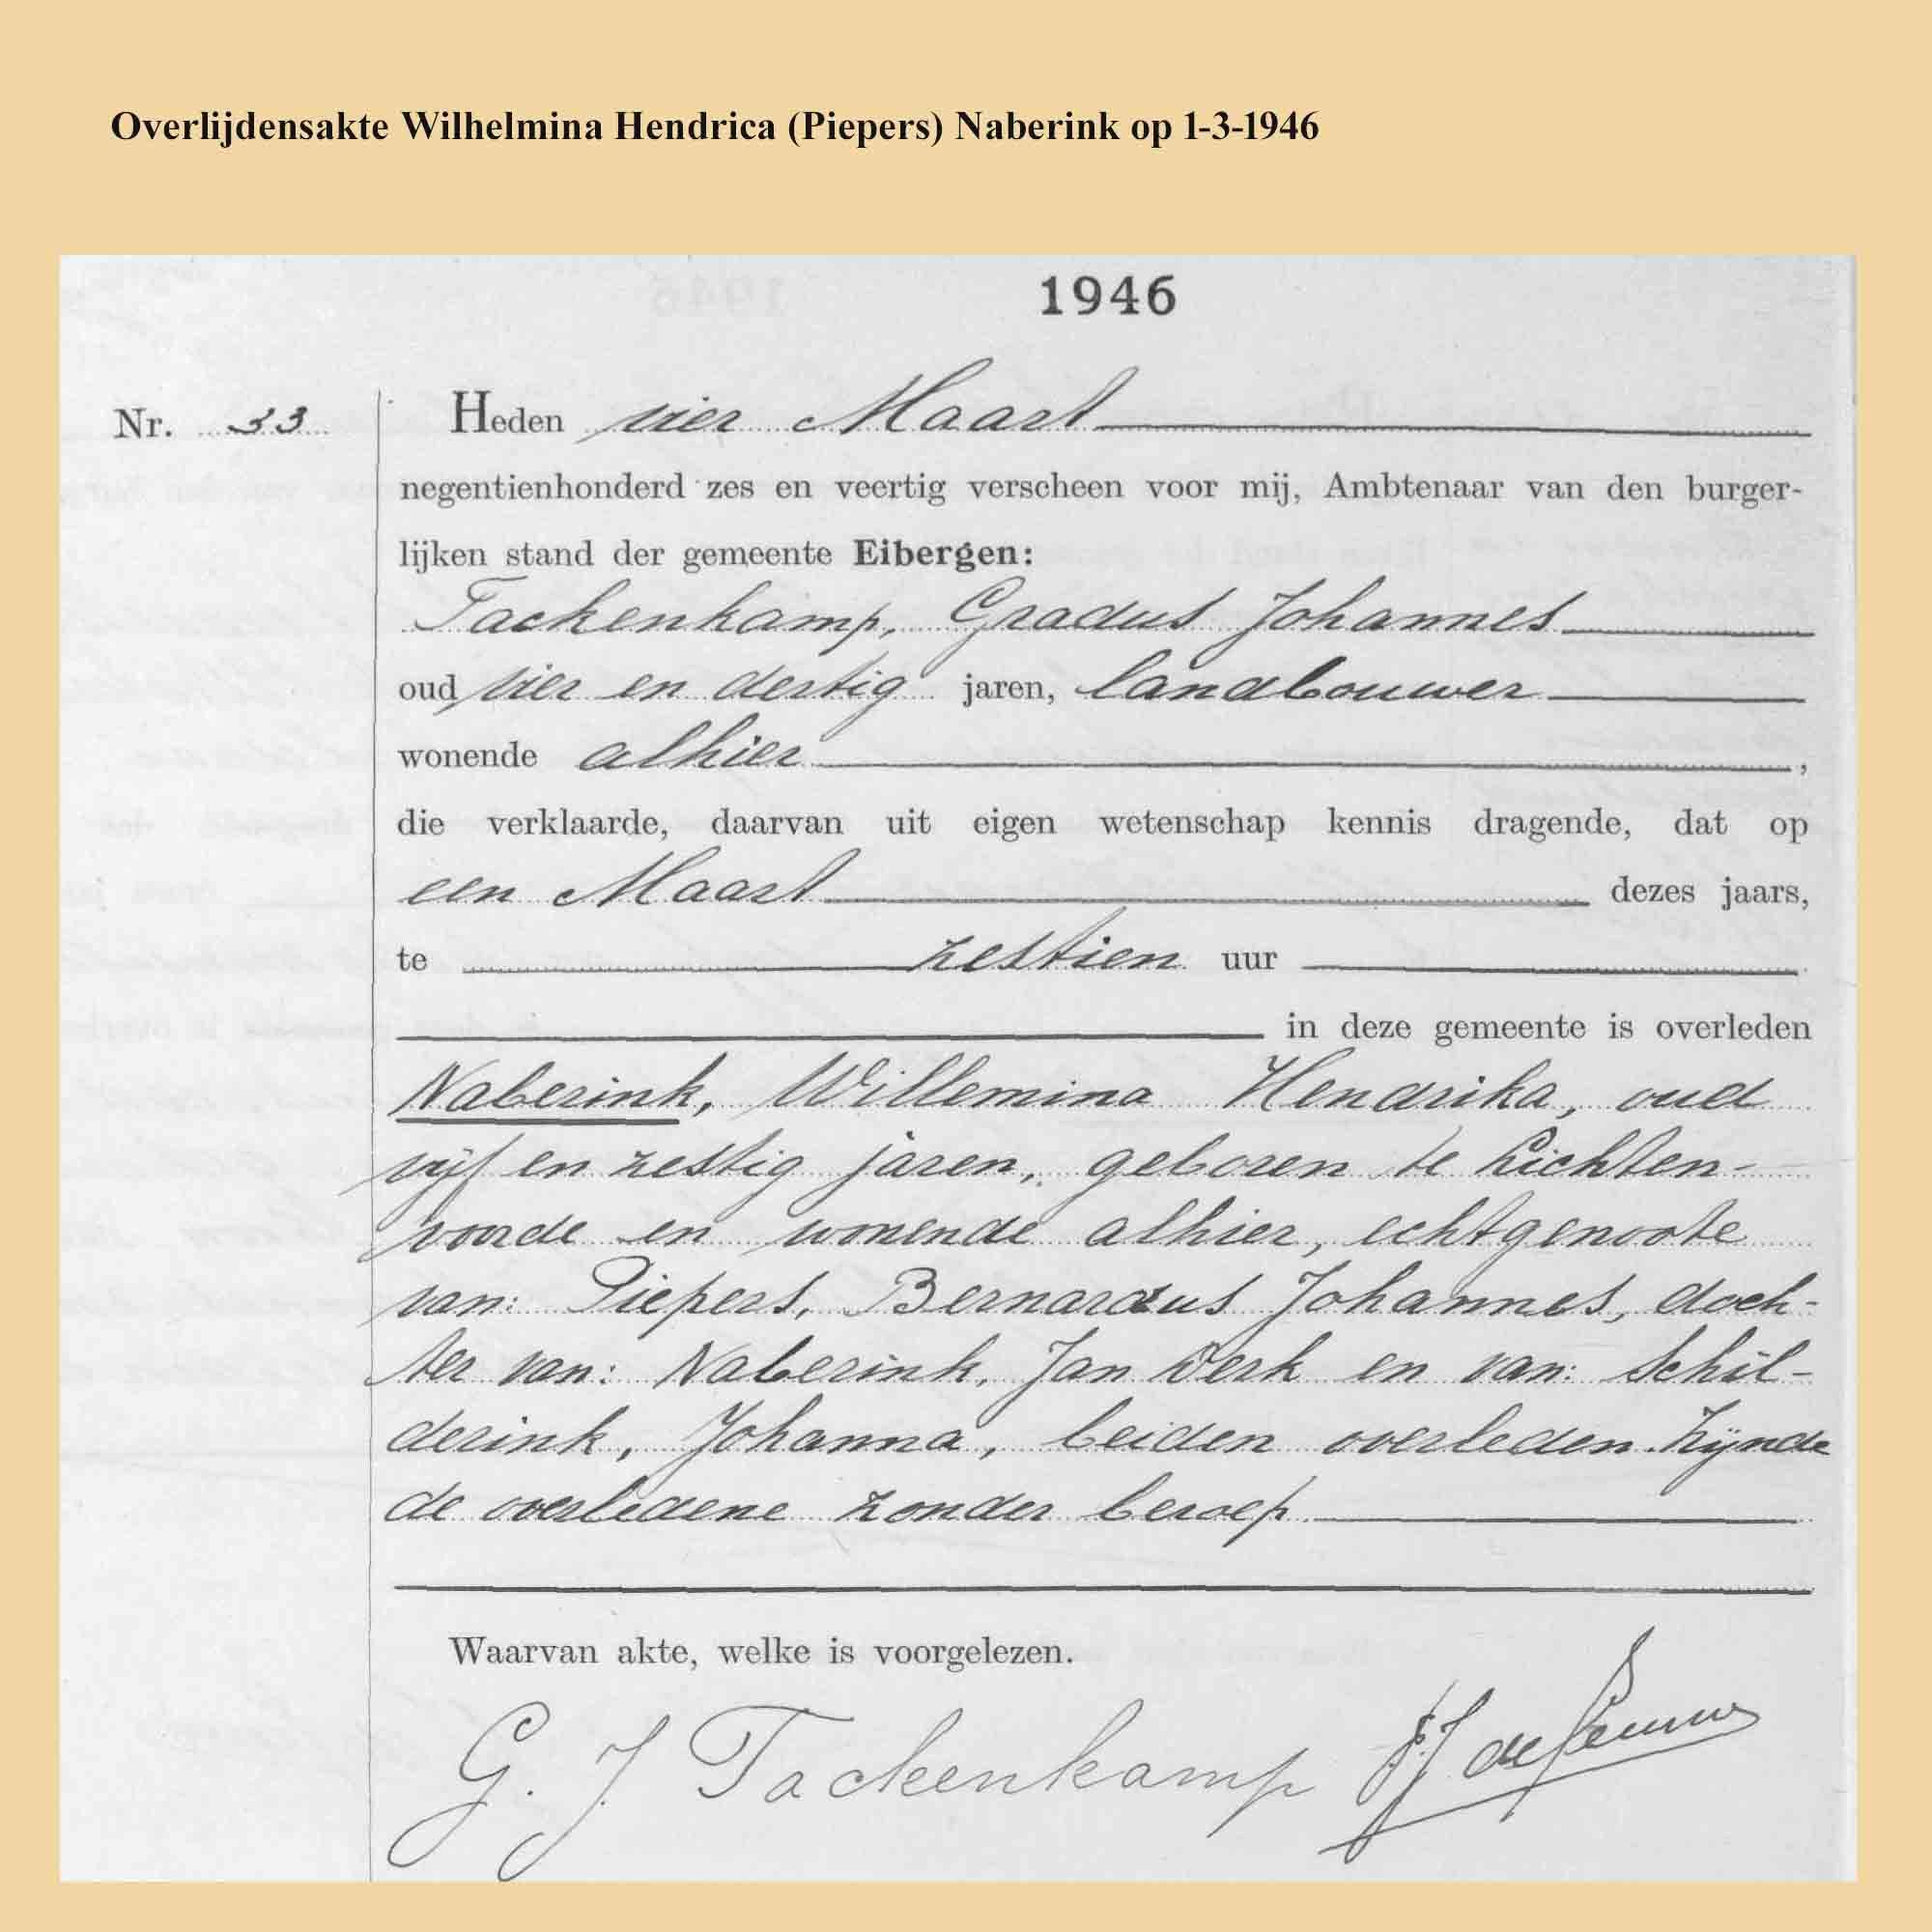 Overlijdensakte Wilhelmina Hendrica (Piepers) Naberink op 1-3-1946
1946
Nr. 33
Heden vier Maart
negentienhonderd zes en veertig verscheen voor mij, Ambtenaar van den burger-
lijken stand der gemeente Eibergen:
Tackenkamp, Gradus Johannes
oud vier en dertig jaren, landbouwer
wonende alhier,
die verklaarde, daarvan uit eigen wetenschap kennis dragende, dat op
een Maart dezes jaars,
te zestien uur
in deze gemeente is overleden
Naberink, Willemina Hendrika, oud
vijf en zestig jaren, geboren te Lichten-
voorde en wonende alhier, echtgenoote
van: Piepers, Bernardus Johannes, doch-
ter van: Naberink, Jan Derk en van: Schil-
derink, Johanna, beiden overleden. Zijnde
de overledene zonder beroep
Waarvan akte, welke is voorgelezen.
G. J. Tackenkamp